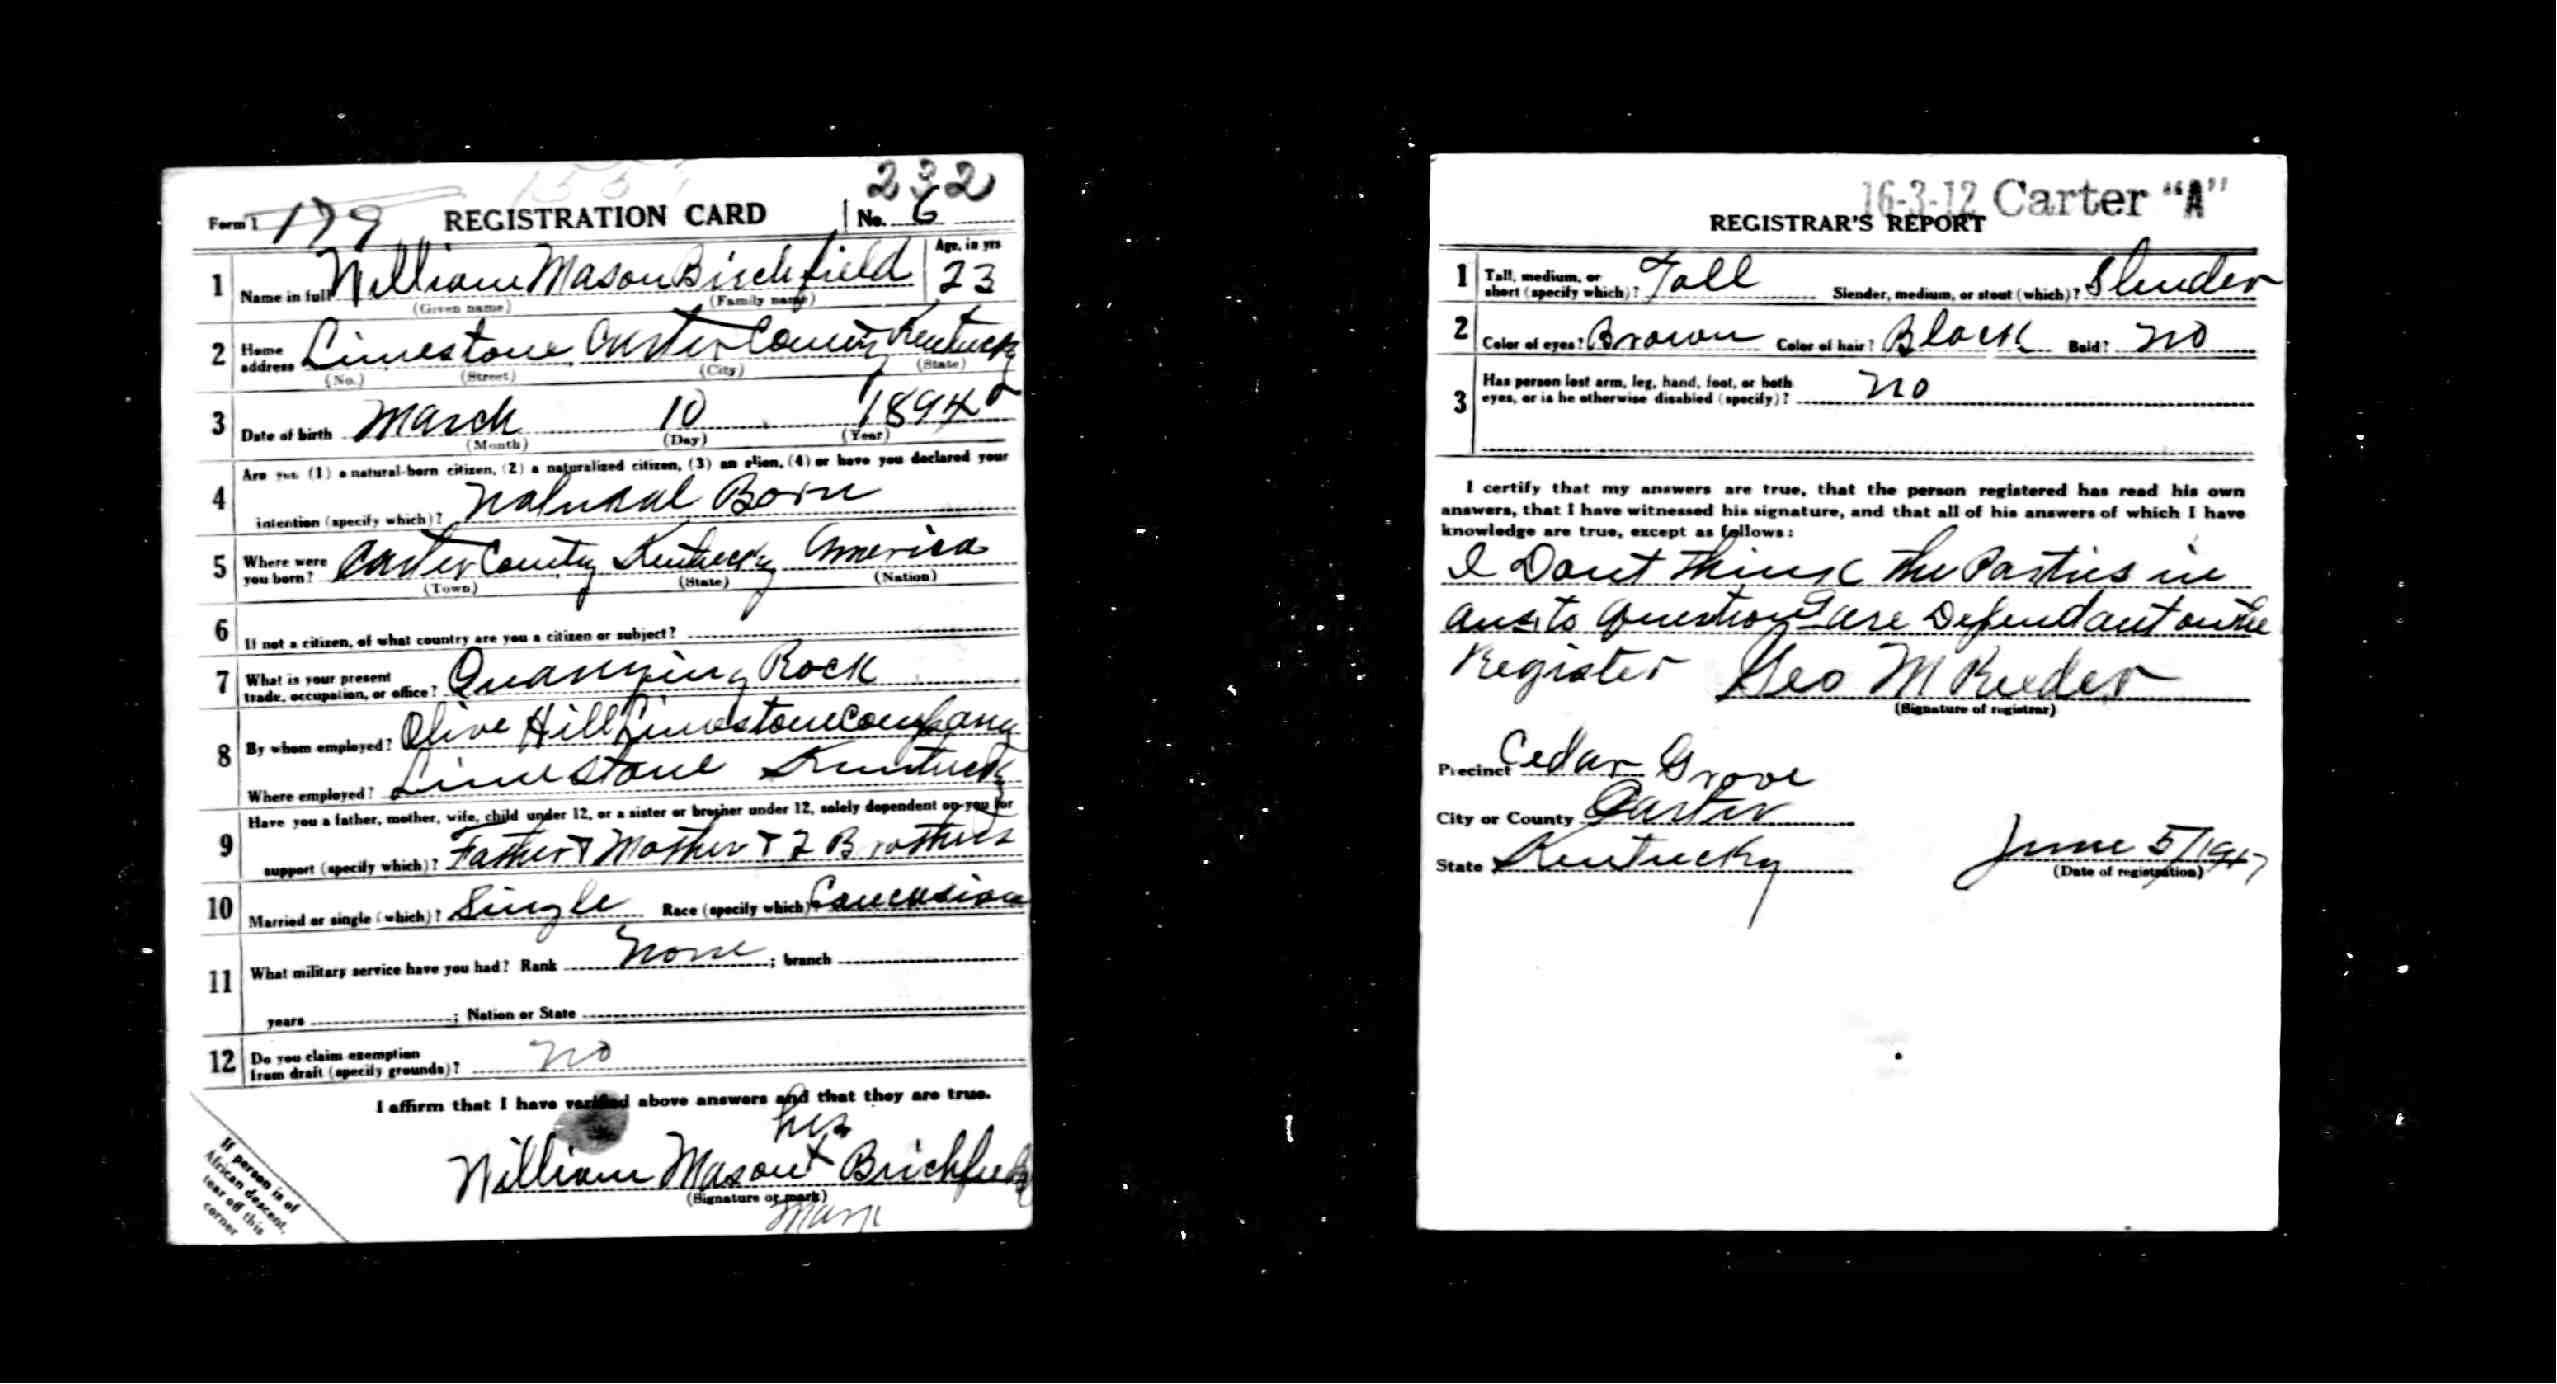 232
Form 1 179 REGISTRATION CARD No. 6
1 Name in full William Mason Birchfield Age, in yrs 23
(Given name) (Family name)
2 Home address Limestone Carter County Kentucky
(No.) (Street) (City) (State)
3 Date of birth March 10 1894
(Month) (Day) (Year)
4 Are you (1) a natural-born citizen, (2) a naturalized citizen, (3) an alien, (4) or have you declared your
intention (specify which)? Natural Born
5 Where were you born? Carter County Kentucky America
(Town) (State) (Nation)
6 If not a citizen, of what country are you a citizen or subject?
7 What is your present
trade, occupation, or office? Quarrying Rock
8 By whom employed? Olive Hill Limestone Company
Where employed? Limestone Kentucky
9 Have you a father, mother, wife, child under 12, or a sister or brother under 12, solely dependent on you for
support (specify which)? Father & Mother & 2 Brothers
10 Married or single (which)? Single Race (specify which)? Caucasian
11 What military service have you had? Rank None ; branch
years ; Nation or State
12 Do you claim exemption
from draft (specify grounds)? No
I affirm that I have verified above answers and that they are true.
his
William Mason X Brichfield
(Signature or mark)
mark
If person is of
African descent,
tear off this
corner
16-3-12 Carter "A"
REGISTRAR'S REPORT
1 Tall, medium, or
short (specify which)? Tall Slender, medium, or stout (which)? Slender
2 Color of eyes? Brown Color of hair? Black Bald? No
3 Has person lost arm, leg, hand, foot, or both
eyes, or is he otherwise disabled (specify)? No
I certify that my answers are true, that the person registered has read his own
answers, that I have witnessed his signature, and that all of his answers of which I have
knowledge are true, except as follows:
I Dont think the Parties in
ans. to Question 9 are Defendant on the
Register Geo M Reeder
(Signature of registrar)
Precinct Cedar Grove
City or County Carter
State Kentucky June 5/1917
(Date of registration)